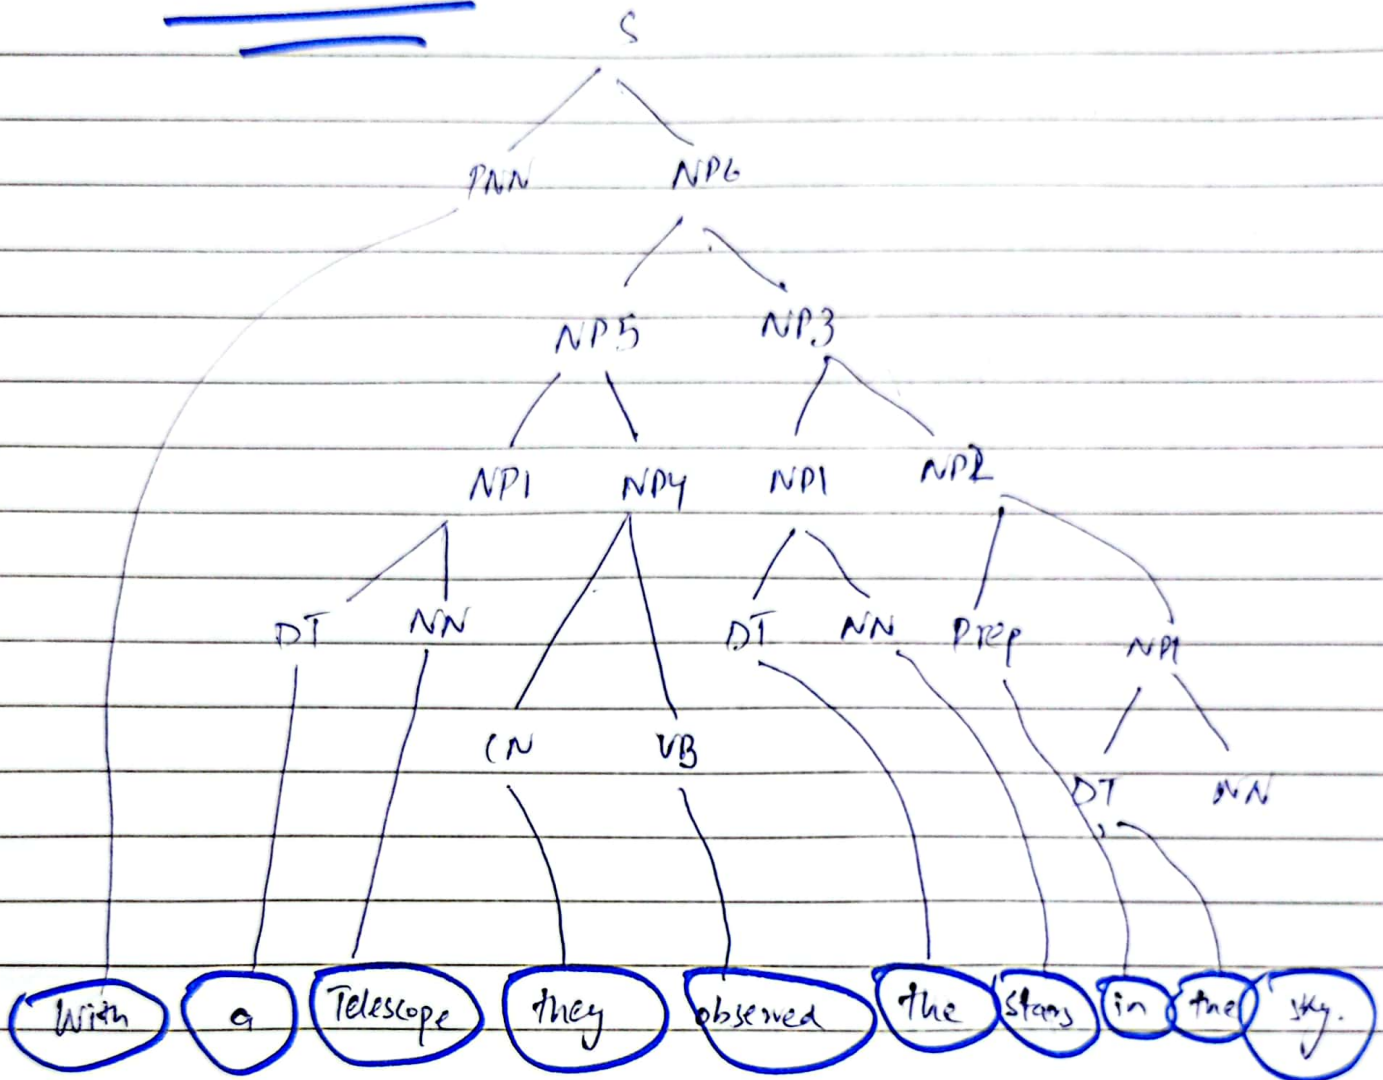 S
PNN NP6
NP5 NP3
NP1 NP4 NP1 NP2
DT NN DT NN Prep NP1
CN VB DT NN
With a Telescope they observed the stars in the sky.